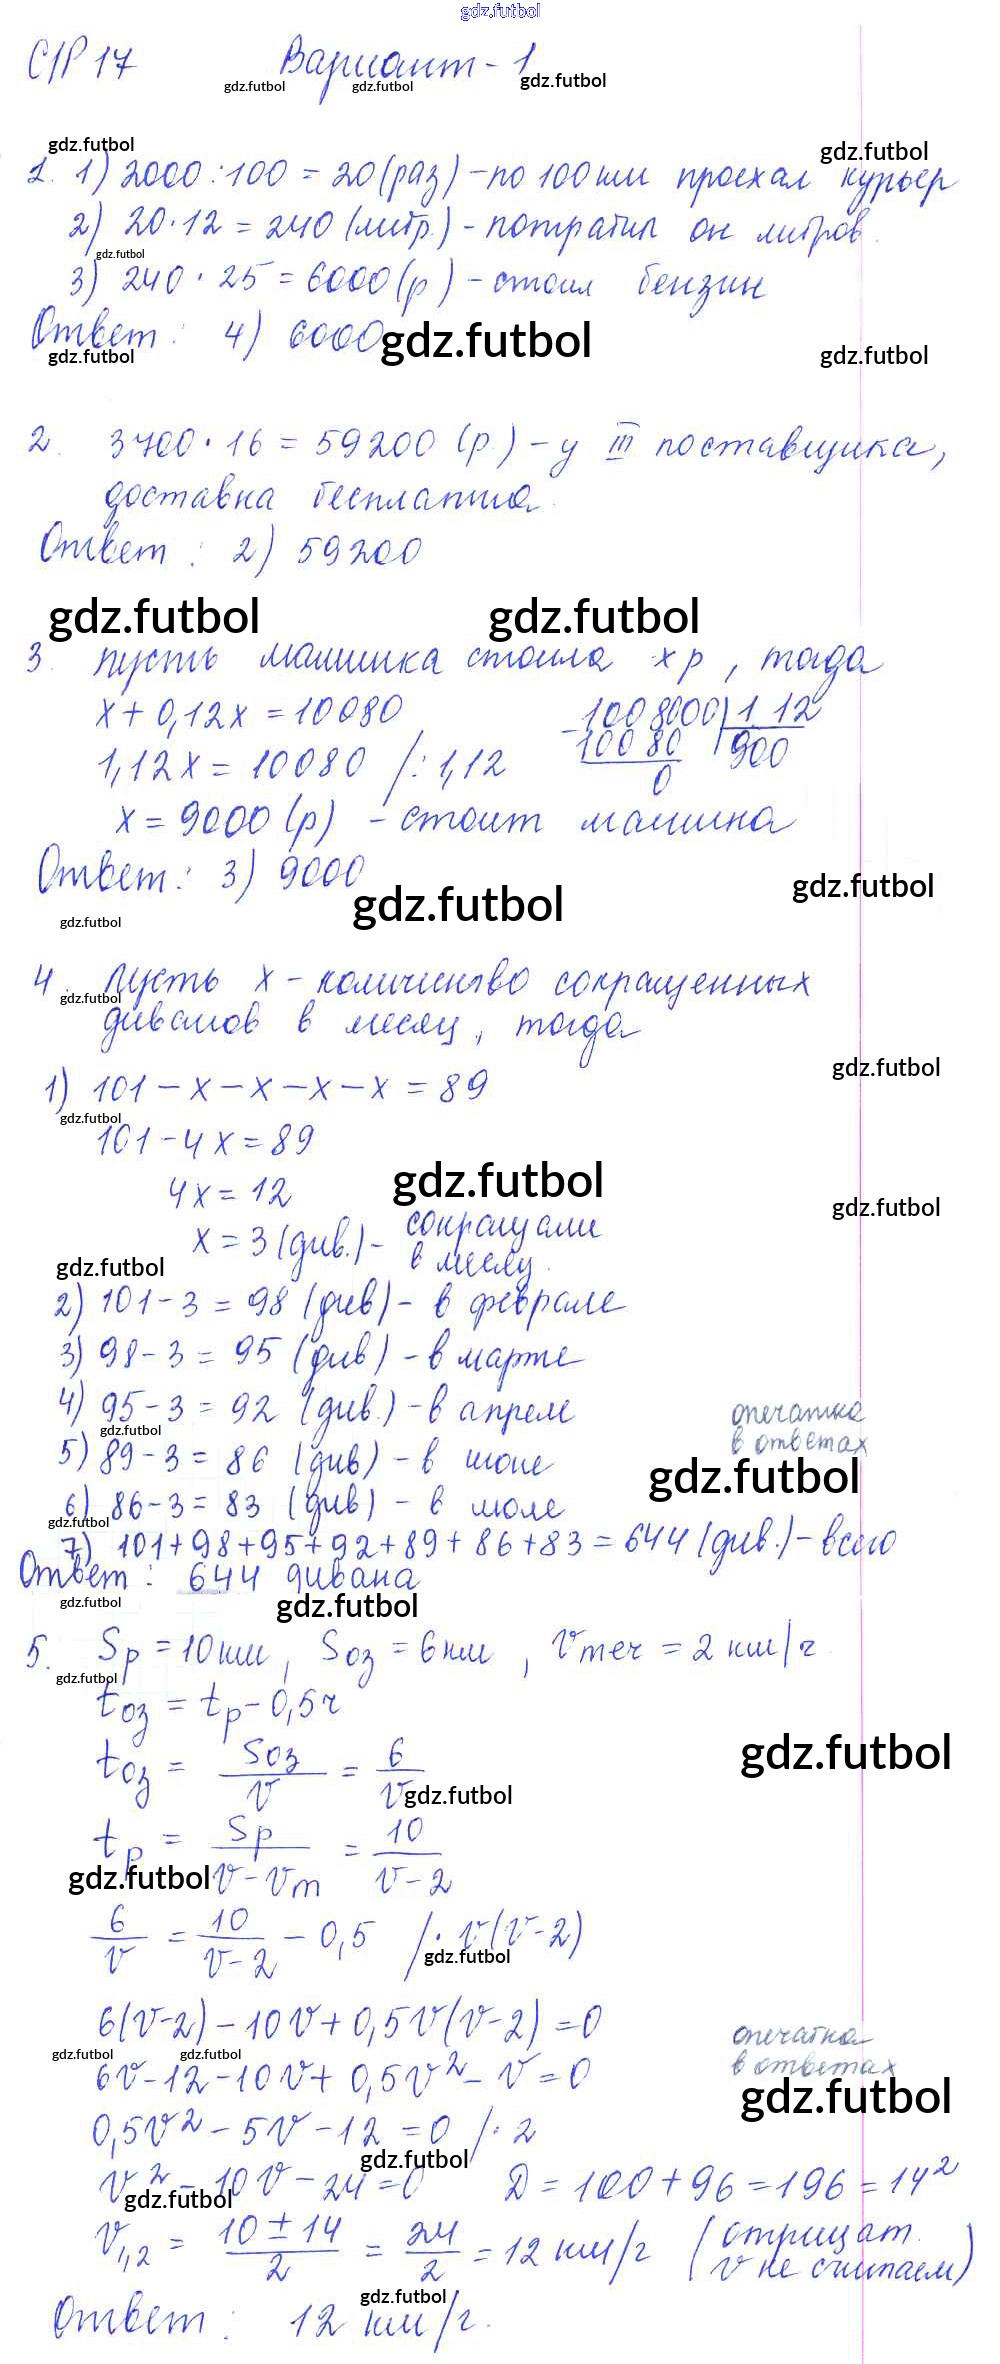 gdz.futbol
С/Р 17 Вариант - 1
gdz.futbol gdz.futbol gdz.futbol
gdz.futbol gdz.futbol
1. 1) 2000 : 100 = 20 (раз) - по 100 км проехал курьер
2) 20 · 12 = 240 (литр.) - потратил он литров.
gdz.futbol
3) 240 · 25 = 6000 (р) - стоил бензин
Ответ : 4) 6000
gdz.futbol
gdz.futbol gdz.futbol
2. 3700 · 16 = 59200 (р.) - у III поставщика,
доставка бесплатна.
Ответ : 2) 59200
gdz.futbol gdz.futbol
3. Пусть машинка стоила x р, тогда
x + 0,12x = 10080
1008000 | 1 12
1,12x = 10080 /: 1,12
10080 900
0
x = 9000 (р) - стоит машина
Ответ : 3) 9000
gdz.futbol gdz.futbol
gdz.futbol
4. Пусть x - количество сокращенных
gdz.futbol
диванов в месяц, тогда
gdz.futbol
1) 101 - x - x - x - x = 89
gdz.futbol
101 - 4x = 89
4x = 12
gdz.futbol
gdz.futbol
x = 3 (див.) - сокращали
в месяц.
gdz.futbol
2) 101 - 3 = 98 (див) - в феврале
3) 98 - 3 = 95 (див) - в марте
4) 95 - 3 = 92 (див.) - в апреле
опечатка
в ответах
gdz.futbol
5) 89 - 3 = 86 (див) - в июне
gdz.futbol
6) 86 - 3 = 83 (див) - в июле
gdz.futbol
7) 101 + 98 + 95 + 92 + 89 + 86 + 83 = 644 (див.) - всего
Ответ : 644 дивана
gdz.futbol gdz.futbol
5. Sр = 10 км, Sоз = 6 км, vтеч = 2 км/ч.
gdz.futbol
tоз = tр - 0,5 ч
gdz.futbol
tоз = Sоз/v = 6/v
gdz.futbol
tр = Sр/(v - vт) = 10/(v - 2)
gdz.futbol
6/v = 10/(v - 2) - 0,5 /· v(v - 2)
gdz.futbol
6(v - 2) - 10v + 0,5v(v - 2) = 0
опечатка
в ответах
gdz.futbol gdz.futbol
6v - 12 - 10v + 0,5v² - v = 0
gdz.futbol
0,5v² - 5v - 12 = 0 /· 2
gdz.futbol
v² - 10v - 24 = 0 D = 100 + 96 = 196 = 14²
gdz.futbol
v1,2 = (10 ± 14)/2 = 24/2 = 12 км/ч (отрицат.
v не считаем)
gdz.futbol
Ответ : 12 км/ч.